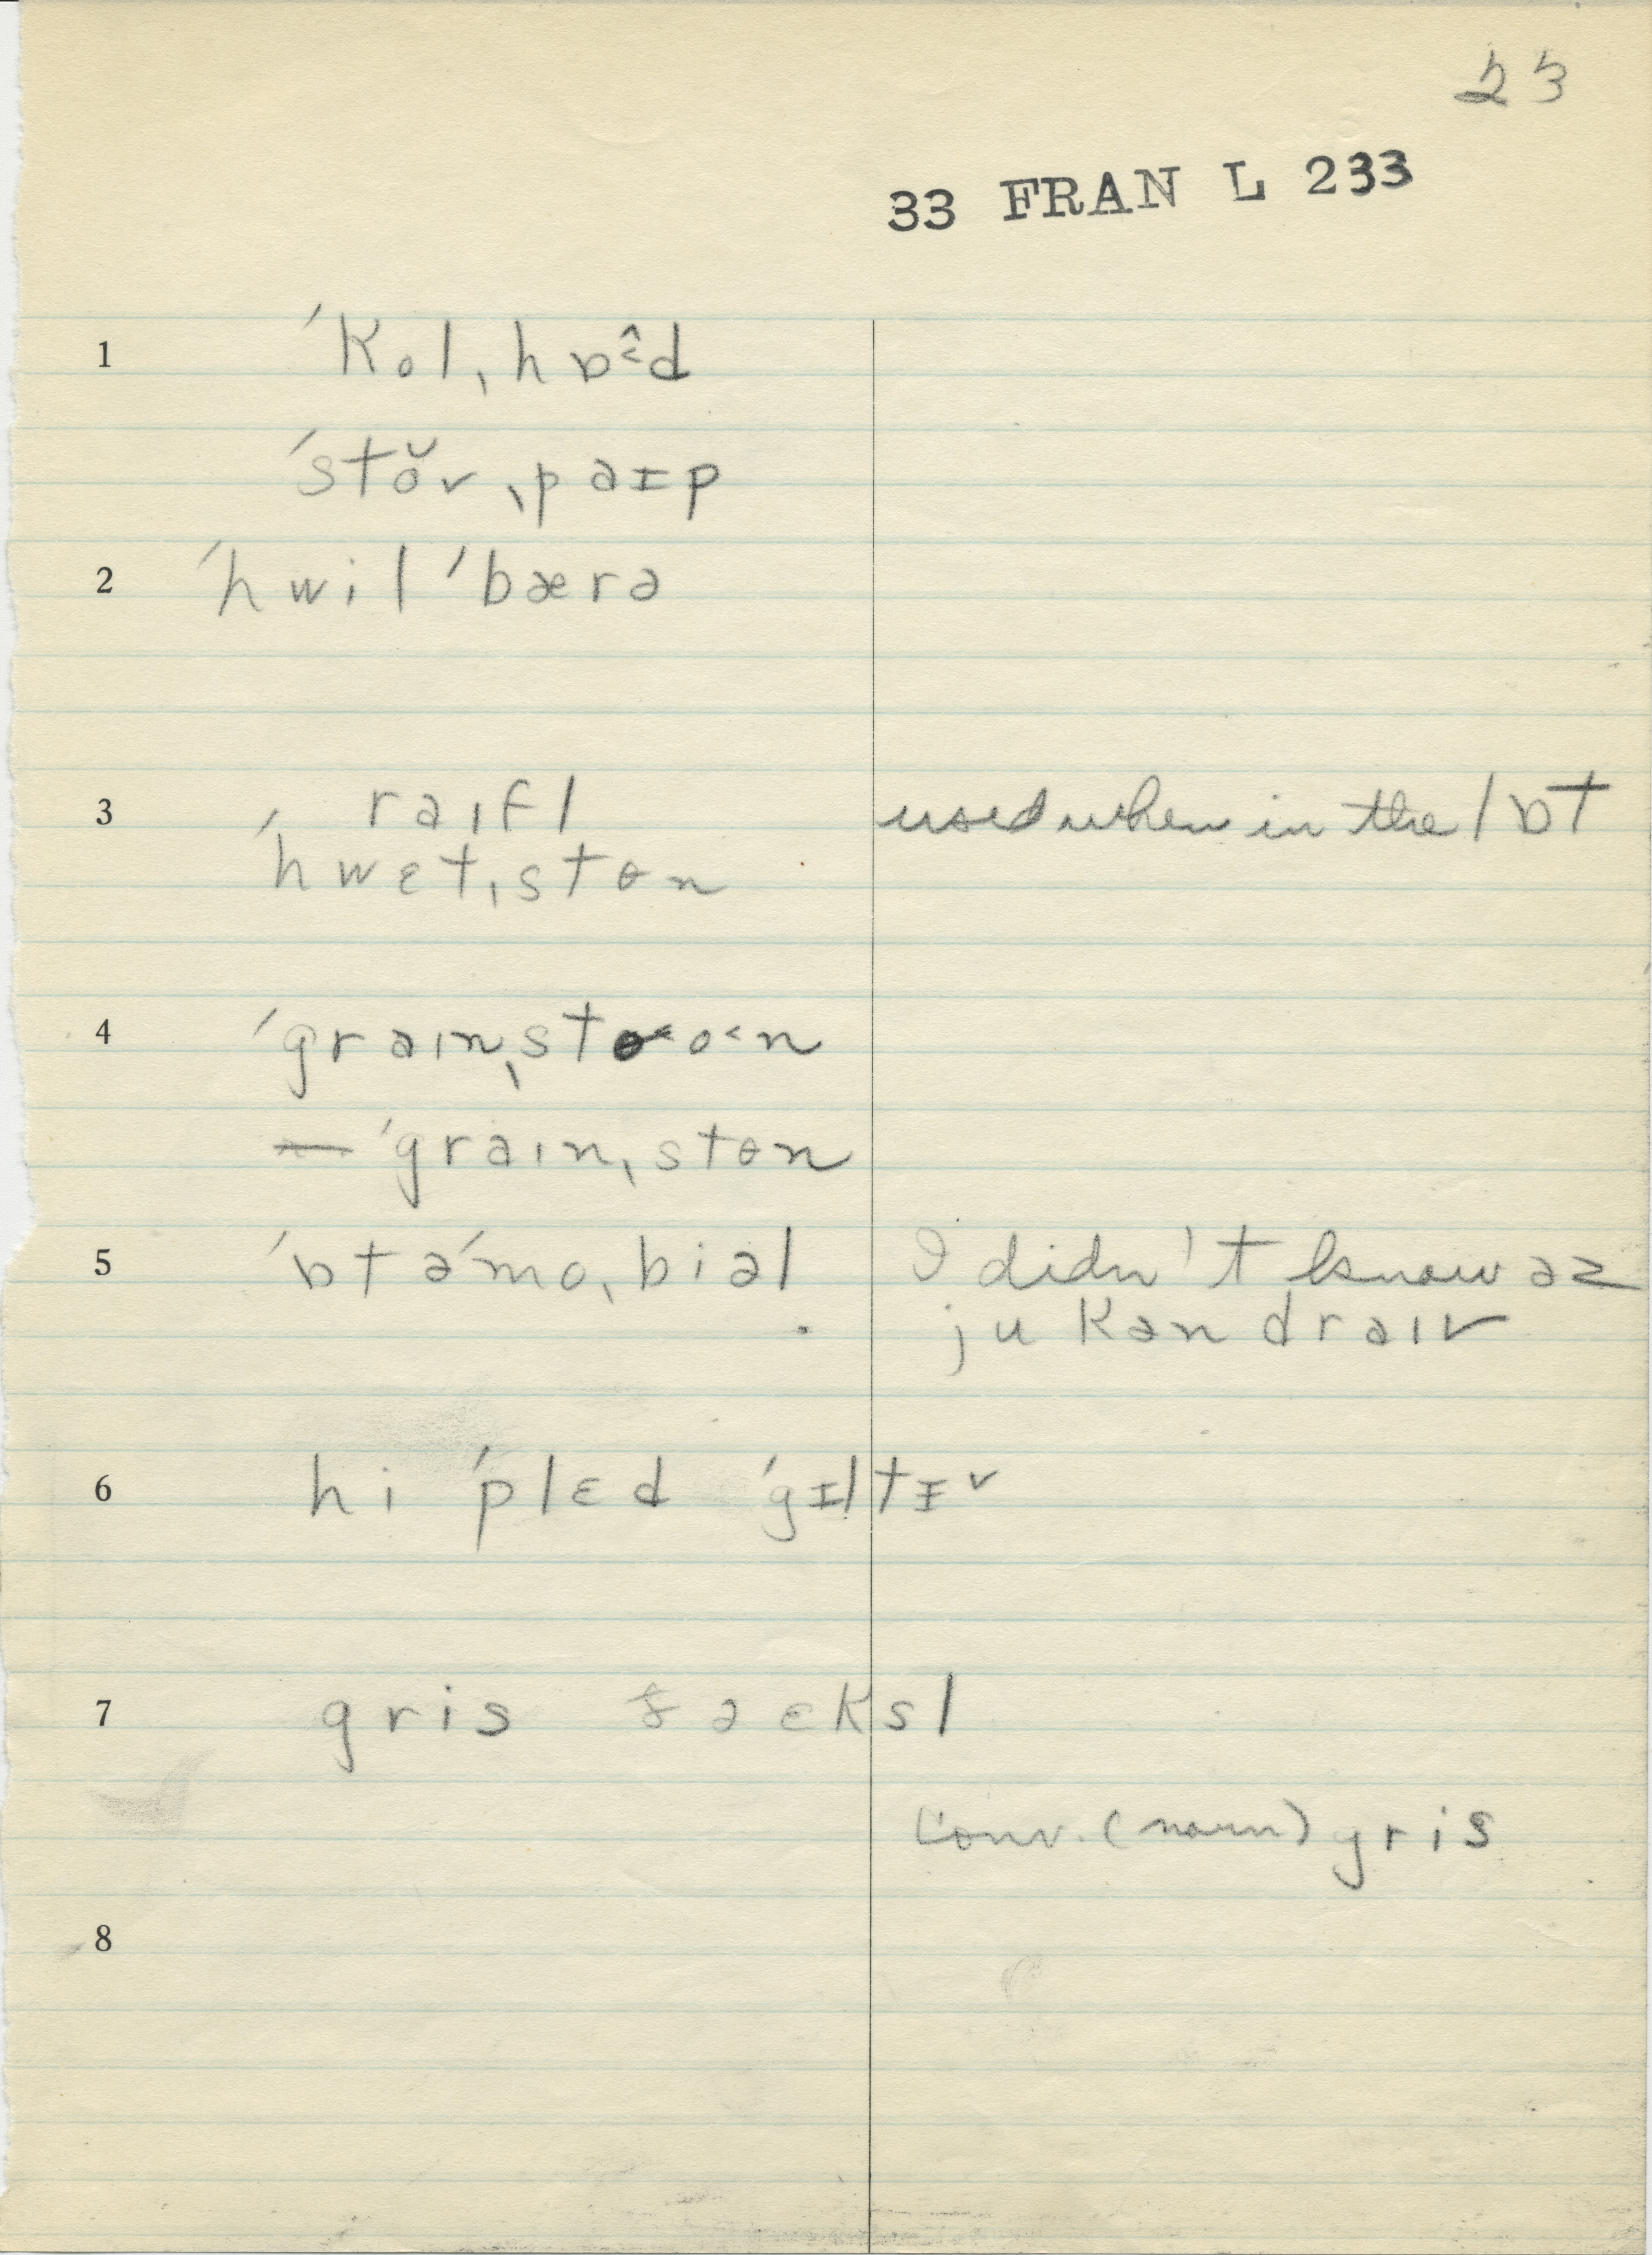 23
33 FRAN L 233
1 ˈkolˌhɒ˂̂d
ˈstŏvˌpaɪp
2 ˈhwilˈbærə
3 raɪfl used when in the lɒt
ˈhwɛtˌstɵn
4 ˈgraɪnˌsto˂n
— ˈgraɪnˌstɵn
5 ˈɒtəˈmoˌbiəl I didn't know əz
ju kən draɪv
6 hi ˈplɛd ˈgɪltɪ˅
7 gris əɛksl
Conv. (noun) gris
8